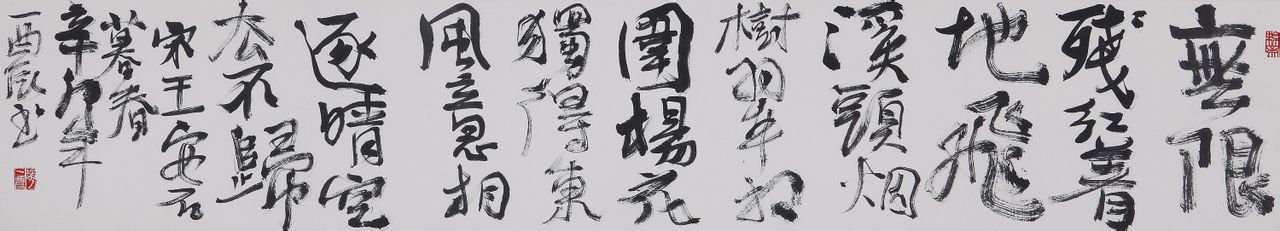 無限
残红着
地飛
溪頭烟
樹翠相
圍楊花
獨得東
風意相
逐晴空
去不歸
宋王安石
暮春
辛卯年